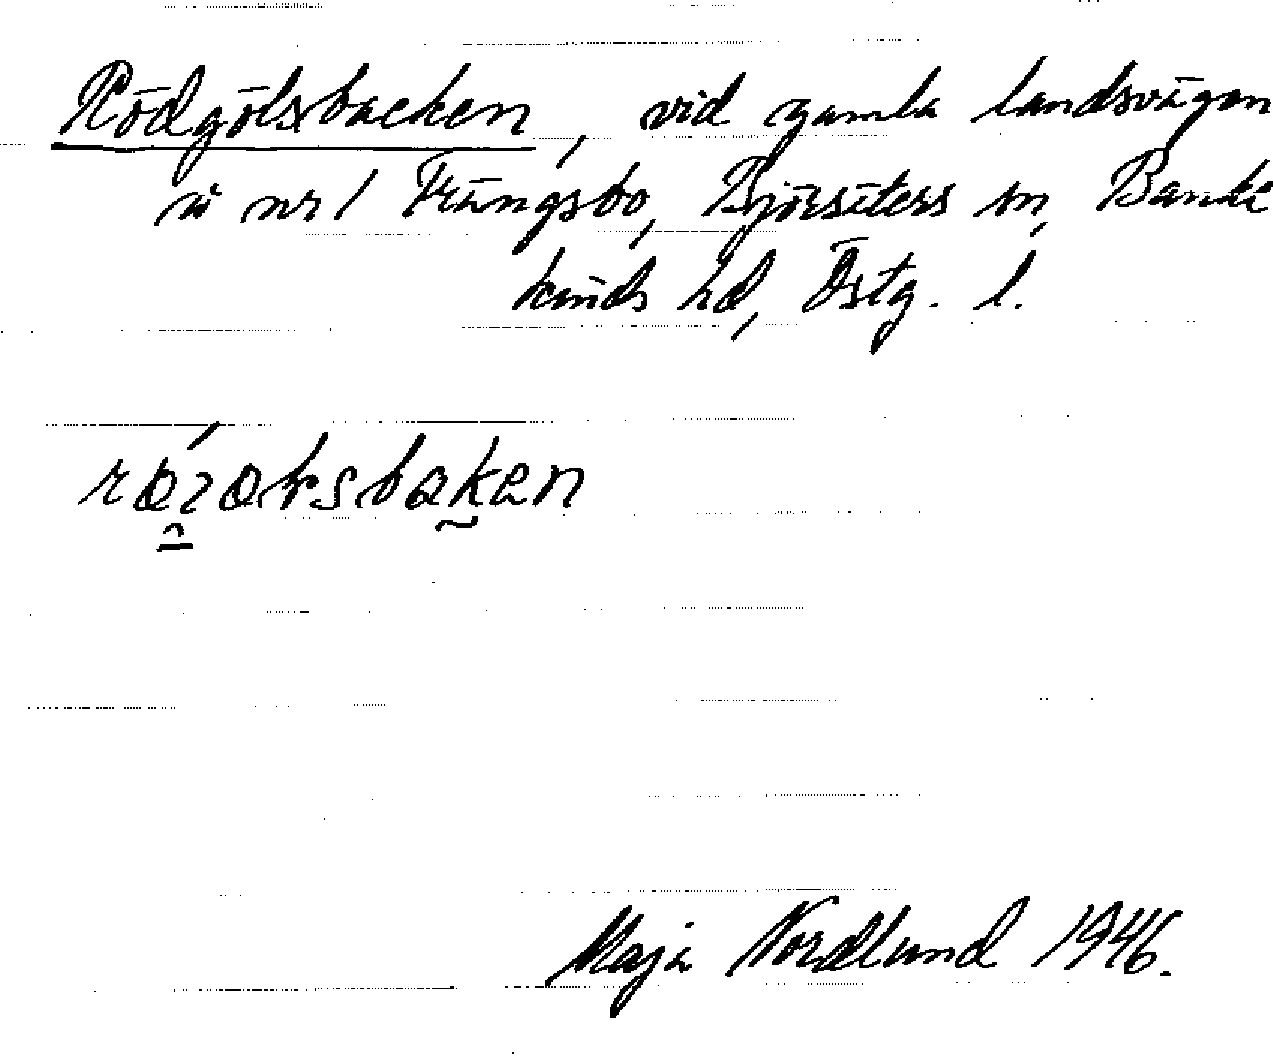 Rödgölsbacken, vid gamla landsvägen
å nr 1 Fängsbo, Björsäters sn, Banke
kinds hd, Östg. l.
Maja Nordlund 1946.